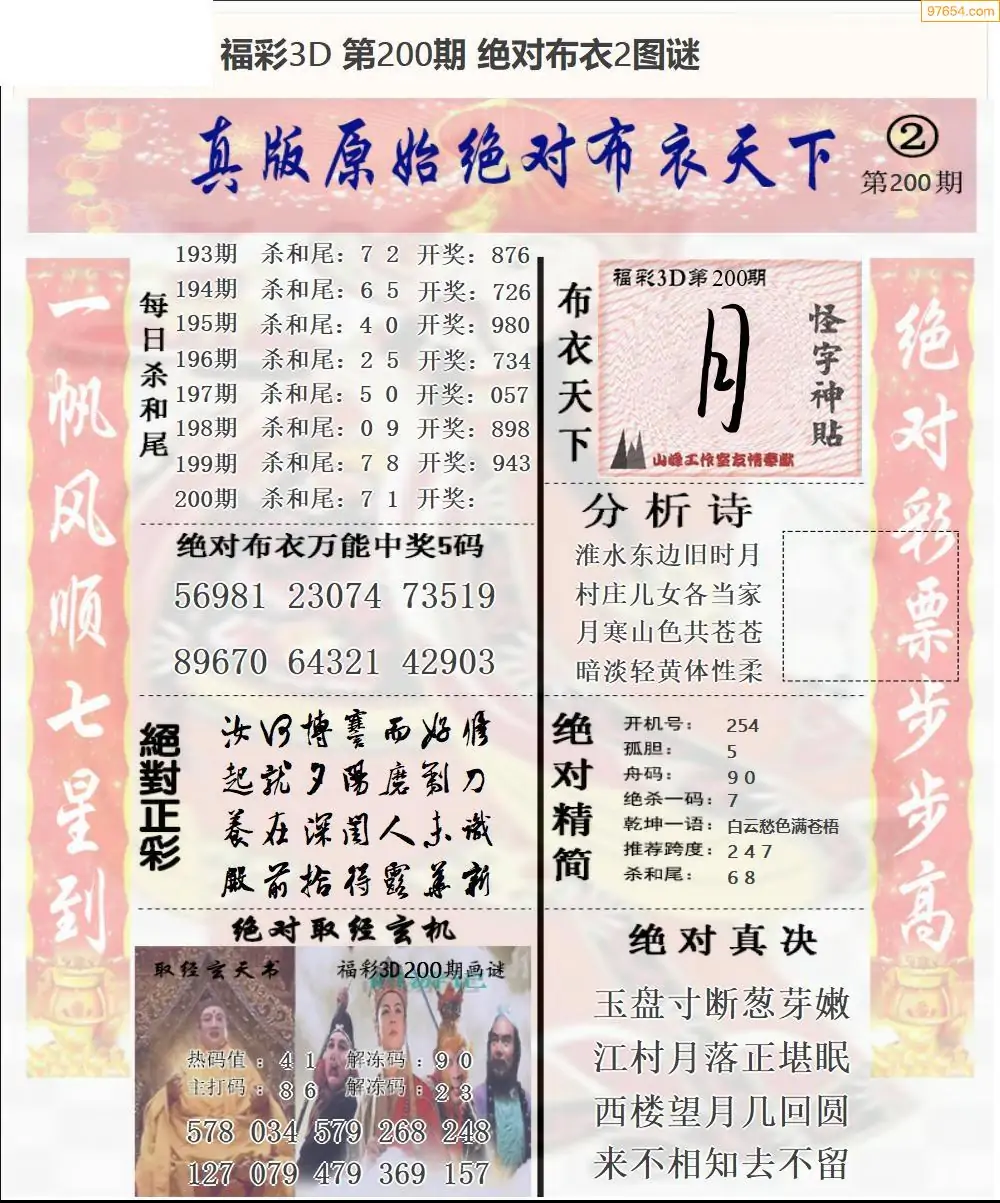 97654.com
福彩3D 第200期 绝对布衣2图谜
真版原始绝对布衣天下
②
第200期
一帆风顺七星到
每日杀和尾
193期 杀和尾：7 2 开奖：876
194期 杀和尾：6 5 开奖：726
195期 杀和尾：4 0 开奖：980
196期 杀和尾：2 5 开奖：734
197期 杀和尾：5 0 开奖：057
198期 杀和尾：0 9 开奖：898
199期 杀和尾：7 8 开奖：943
200期 杀和尾：7 1 开奖：
绝对布衣万能中奖5码
56981 23074 73519
89670 64321 42903
絕對正彩
汝何博謇而好修
起就夕陽磨劉刀
养在深闺人未识
殿前拾得露華新
绝对取经玄机
取经玄天书
福彩3D200期画谜
热码值：4 1 解冻码：9 0
主打码：8 6 解冻码：2 3
578 034 579 268 248
127 079 479 369 157
布衣天下
福彩3D第200期
月
怪字神貼
山峰工作室友情奉献
分析诗
淮水东边旧时月
村庄儿女各当家
月寒山色共苍苍
暗淡轻黄体性柔
绝对精简
开机号：254
孤胆：5
舟码：9 0
绝杀一码：7
乾坤一语：白云愁色满苍梧
推荐跨度：2 4 7
杀和尾：6 8
绝对真决
玉盘寸断葱芽嫩
江村月落正堪眠
西楼望月几回圆
来不相知去不留
绝对彩票步步高